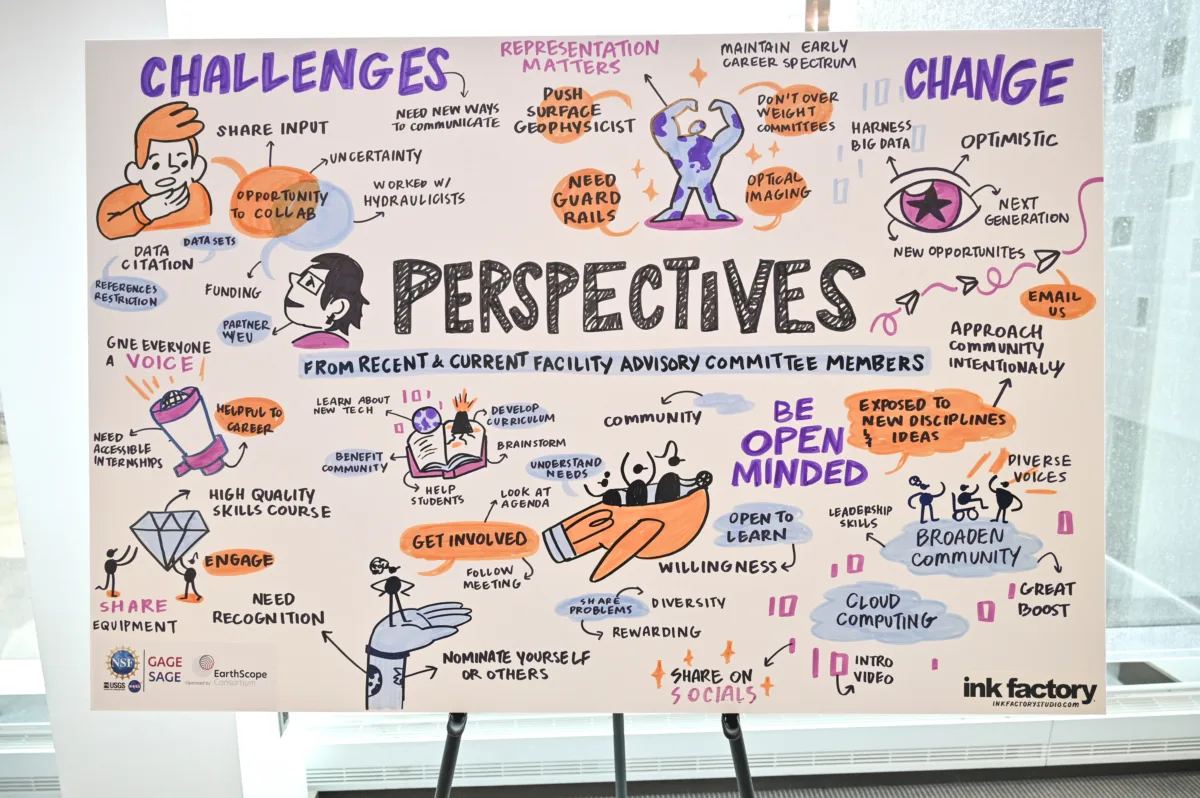 CHALLENGES
SHARE INPUT
NEED NEW WAYS
TO COMMUNICATE
UNCERTAINTY
OPPORTUNITY
TO COLLAB
WORKED W/
HYDRAULICISTS
DATA
CITATION
DATA SETS
REFERENCES
RESTRICTION
FUNDING
PARTNER
W/EU
REPRESENTATION
MATTERS
MAINTAIN EARLY
CAREER SPECTRUM
PUSH
SURFACE
GEOPHYSICIST
DON'T OVER
WEIGHT
COMMITTEES
NEED
GUARD
RAILS
OPTICAL
IMAGING
CHANGE
HARNESS
BIG DATA
OPTIMISTIC
NEXT
GENERATION
NEW OPPORTUNITES
EMAIL
US
PERSPECTIVES
FROM RECENT & CURRENT FACILITY ADVISORY COMMITTEE MEMBERS
GIVE EVERYONE
A VOICE
HELPFUL TO
CAREER
NEED
ACCESSIBLE
INTERNSHIPS
HIGH QUALITY
SKILLS COURSE
ENGAGE
SHARE
EQUIPMENT
LEARN ABOUT
NEW TECH
DEVELOP
CURRICULUM
BRAINSTORM
BENEFIT
COMMUNITY
HELP
STUDENTS
LOOK AT
AGENDA
GET INVOLVED
FOLLOW
MEETING
NEED
RECOGNITION
NOMINATE YOURSELF
OR OTHERS
COMMUNITY
UNDERSTAND
NEEDS
BE
OPEN
MINDED
OPEN TO
LEARN
WILLINGNESS
SHARE
PROBLEMS
DIVERSITY
REWARDING
SHARE ON
SOCIALS
APPROACH
COMMUNITY
INTENTIONALY
EXPOSED TO
NEW DISCIPLINES
& IDEAS
DIVERSE
VOICES
LEADERSHIP
SKILLS
BROADEN
COMMUNITY
GREAT
BOOST
CLOUD
COMPUTING
INTRO
VIDEO
NSF
USGS
NASA
GAGE
SAGE
Operated by
EarthScope
Consortium
ink factory
INKFACTORYSTUDIO.COM